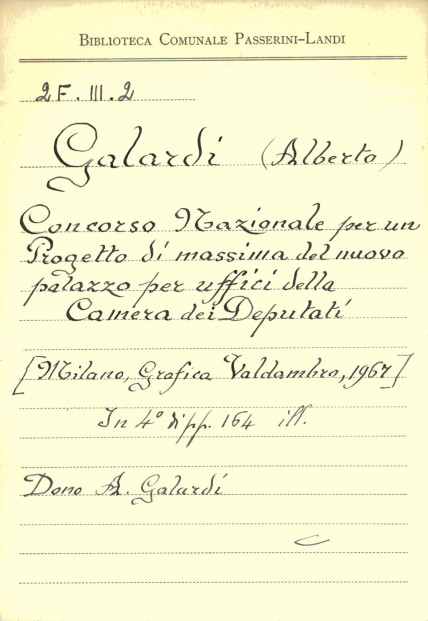 BIBLIOTECA COMUNALE PASSERINI-LANDI
2F.III.2
Galardi (Alberto)
Concorso Nazionale per un
Progetto di massima del nuovo
palazzo per uffici della
Camera dei Deputati
[Milano, Grafica Valdambro, 1967]
In 4° di pp. 164 ill.
Dono A. Galardi